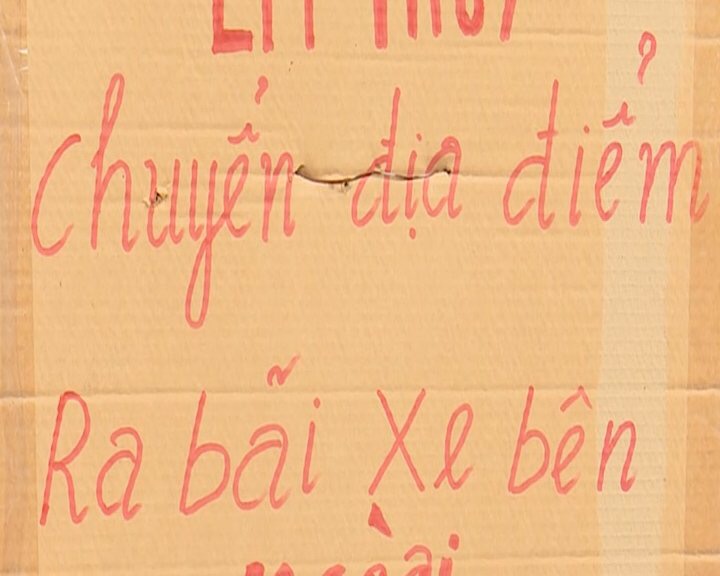 Chuyển địa điểm
Ra bãi Xe bên
ngoài